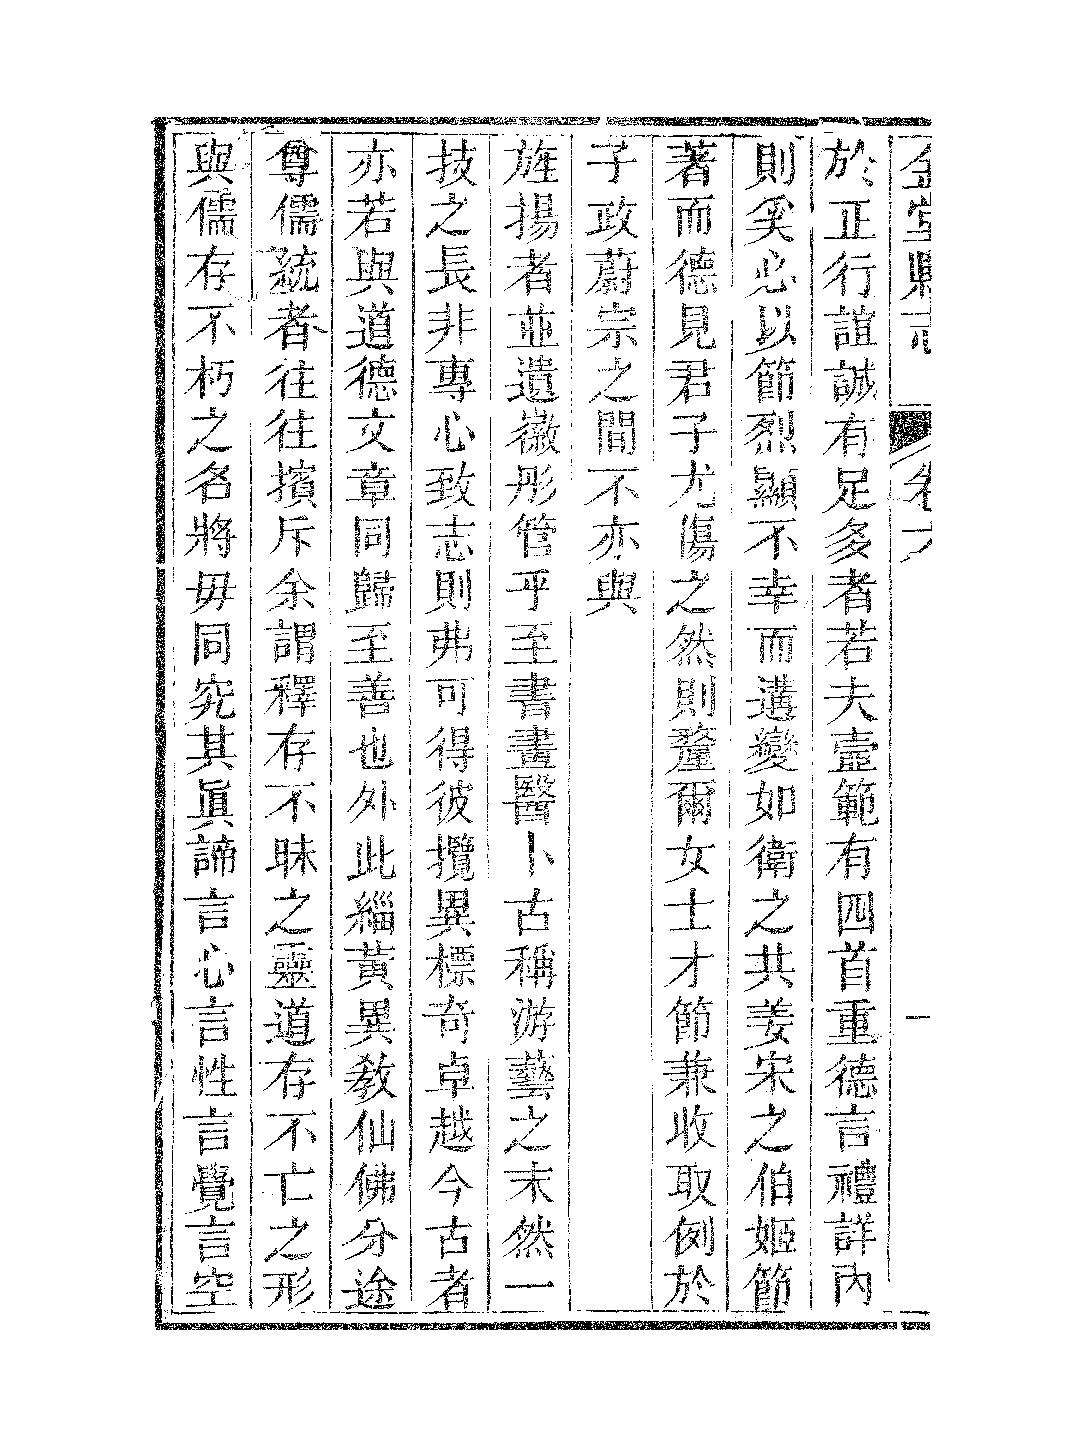 金堂縣志 卷六 一
於正行誼誠有足多者若夫壼範有四首重德言禮詳內
則奚必以節烈顯不幸而遘變如衛之共姜宋之伯姬節
著而德見君子尤傷之然則釐爾女士才節兼收取例於
子政蔚宗之間不亦與
旌揚者並遺徽彤管乎至書畫醫卜古稱游藝之末然一
技之長非專心致志則弗可得彼攬異標奇卓越今古者
亦若與道德文章同歸至善也外此緇黃異敎仙佛分途
尊儒統者往往擯斥余謂釋存不昧之靈道存不亡之形
與儒存不朽之名將毋同究其眞諦言心言性言覺言空